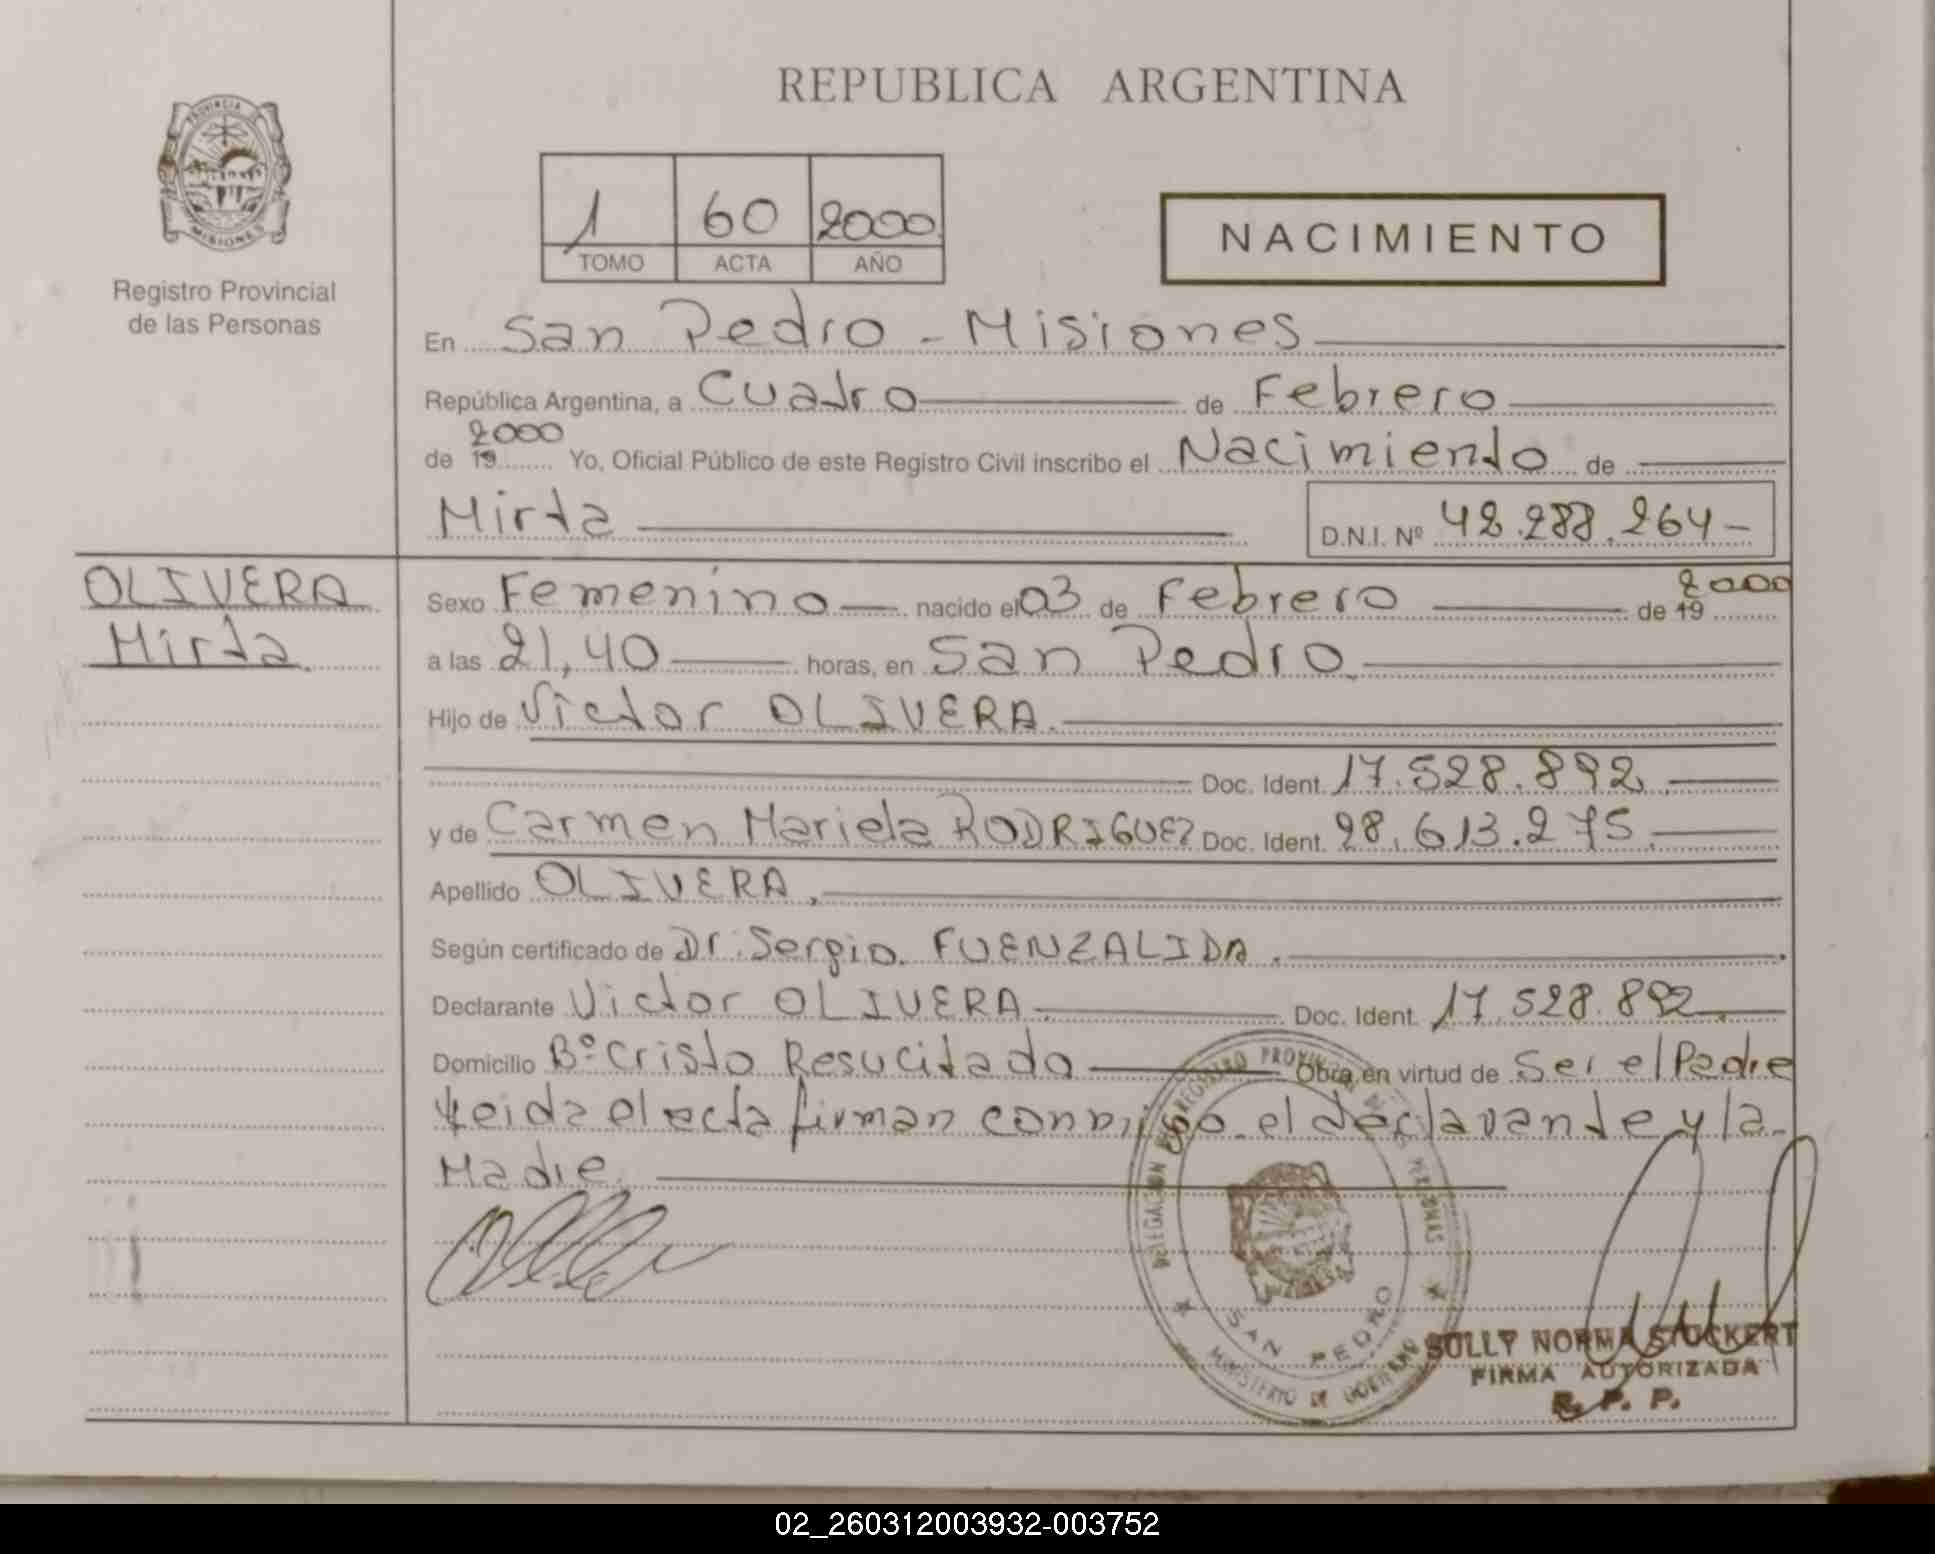 REPUBLICA ARGENTINA
PROVINCIA DE
MISIONES
Registro Provincial
de las Personas
1 60 2000
TOMO ACTA AÑO
NACIMIENTO
En San Pedro - Misiones
República Argentina, a Cuatro de Febrero
2000
de 19 Yo, Oficial Público de este Registro Civil inscribo el Nacimiento de
Mirta D.N.I. Nº 42.288.264-
OLIVERA
Mirta.
Sexo Femenino nacido el 03 de Febrero de 19 2000
a las 21,40 horas, en San Pedro
Hijo de Victor OLIVERA.
Doc. Ident. 17.528.892.
y de Carmen Mariela RODRIGUEZ Doc. Ident. 28.613.275.
Apellido OLIVERA,
Según certificado de Dr. Sergio FUENZALIDA.
Declarante Victor OLIVERA. Doc. Ident. 17.528.892.
Domicilio Bº Cristo Resucitado Obra en virtud de Ser el Padre
Leida el acta firman conmigo el declarante y la
Madre.
DELEGACION DEL REGISTRO PROVINCIAL DE LAS PERSONAS
SAN PEDRO
MINISTERIO DE GOBIERNO
SULLY NORMA STOCKERT
FIRMA AUTORIZADA
R. P. P.
02_260312003932-003752